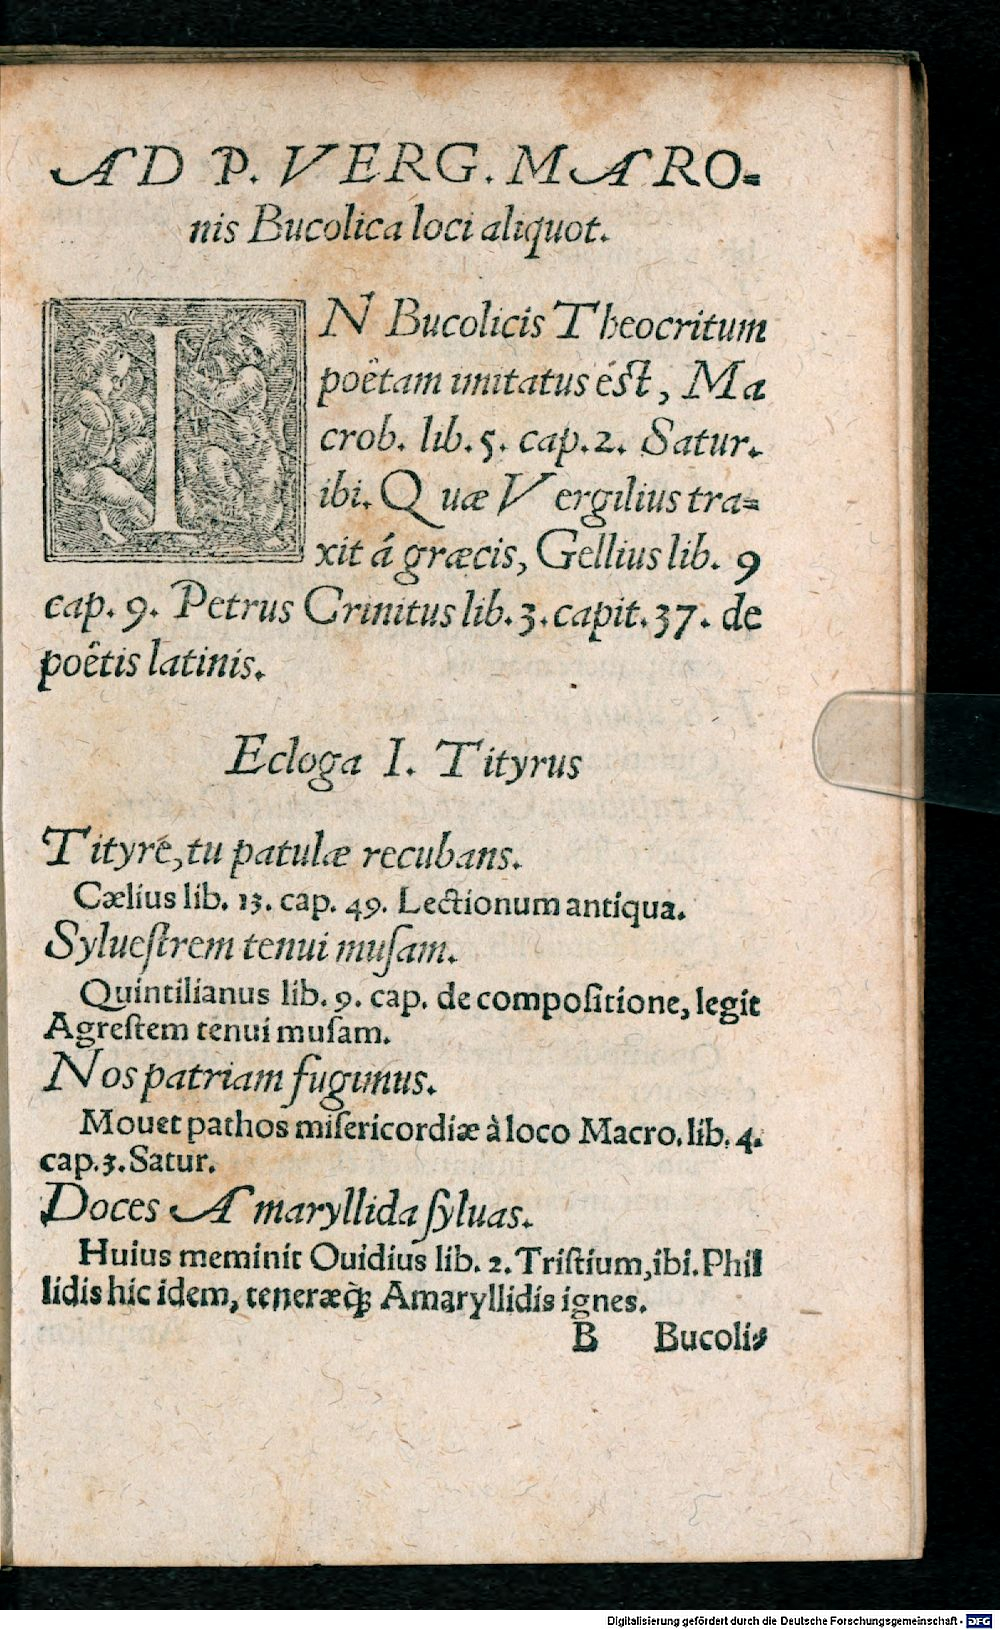 AD P. VERG. MARO-
nis Bucolica loci aliquot.
IN Bucolicis Theocritum
poëtam imitatus ést, Ma
crob. lib. 5. cap. 2. Satur.
ibi. Quæ Vergilius tra-
xit á græcis, Gellius lib. 9
cap. 9. Petrus Crinitus lib. 3. capit. 37. de
poêtis latinis.
Ecloga I. Tityrus
Tityre, tu patulæ recubans.
Cælius lib. 13. cap. 49. Lectionum antiqua.
Sylueſtrem tenui muſam.
Quintilianus lib. 9. cap. de compoſitione, legit
Agreſtem tenui muſam.
Nos patriam fugimus.
Mouet pathos miſericordiæ à loco Macro. lib. 4.
cap. 3. Satur.
Doces Amaryllida ſyluas.
Huius meminit Ouidius lib. 2. Triſtium, ibi. Phil
lidis hic idem, teneræq́; Amaryllidis ignes.
B Bucolis
Digitalisierung gefördert durch die Deutsche Forschungsgemeinschaft - DFG